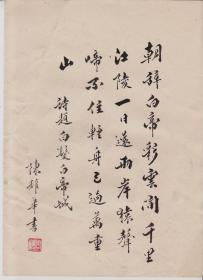 朝辞白帝彩雲間千里
江陵一日還两岸猿聲
啼不住軽舟已過萬重
山
詩題白凝白帝城
陳雄華書